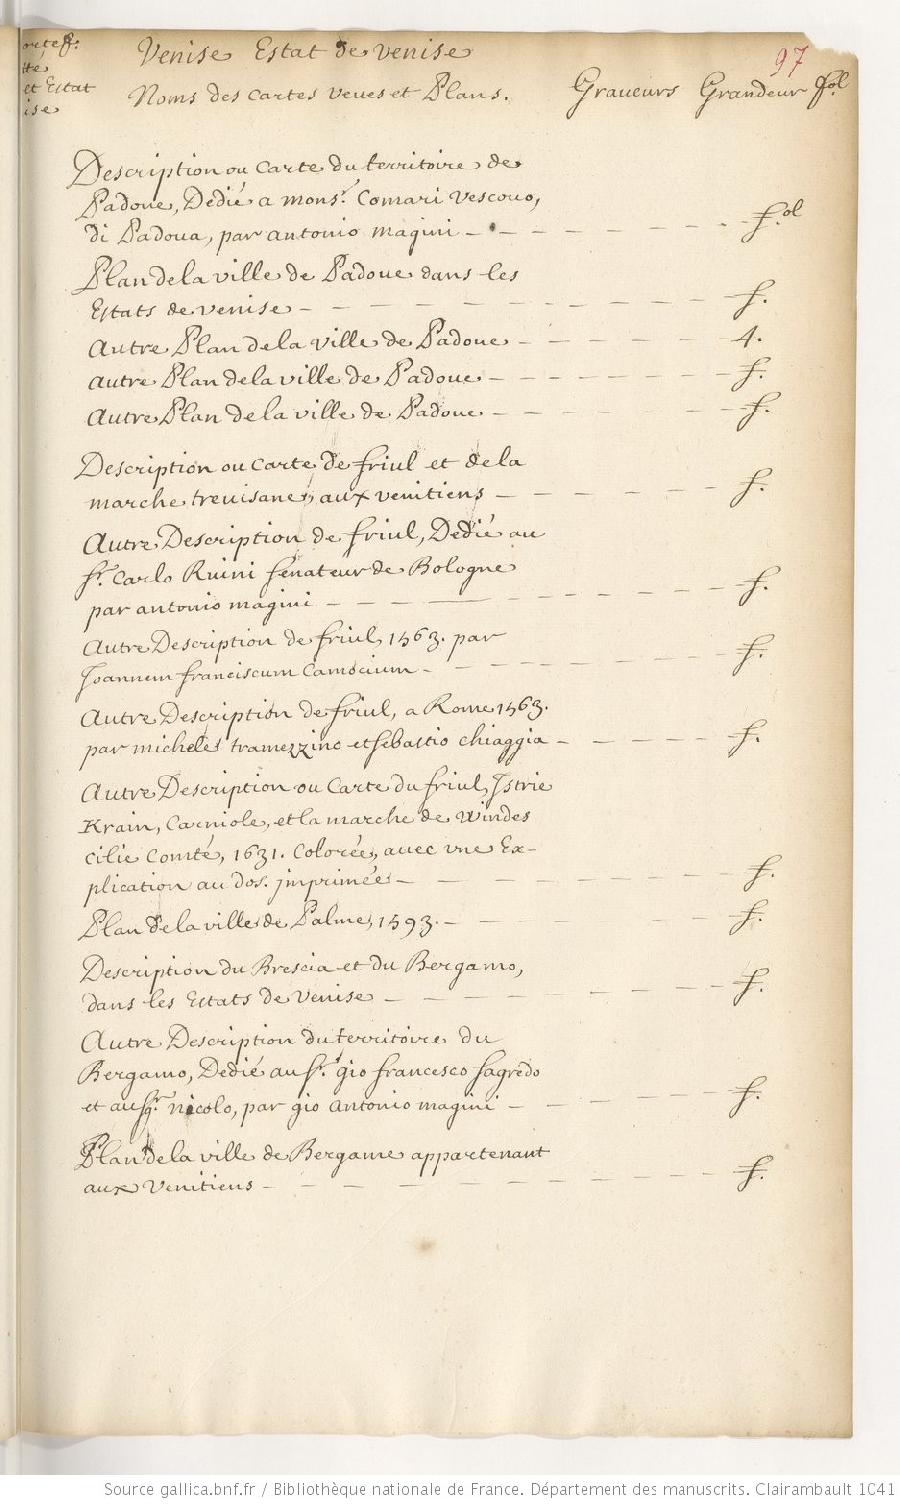 ortef.
tte
et Estat
ise
Venise Estat de venise
97
Noms des cartes veues et Plans. Graveurs Grandeur fol
Description ou Carte du territoire de
Padoue, Dedié a monsr. Cornari vescovo,
di Padoua, par antonio magini - - - - f.ol
Plan de la ville de Padoue dans les
Estats de venise - - - - f.
Autre Plan de la ville de Padoue - - - - 4.
autre Plan de la ville de Padoue - - - - f.
Autre Plan de la ville de Padoue - - - - f.
Description ou Carte de friul et de la
marche trevisane, aux venitiens - - - - f.
Autre Description de friul, Dedié au
sr. Carlo Ruini senateur de Bologne
par antonio magini - - - - f.
Autre Description de friul, 1563. par
Joannem franciscum Camocium - - - - f.
Autre Description de friul, a Rome 1563.
par michele tramezzino et sebastio chiaggia - - - - f.
Autre Description ou Carte du friul, Istrie
Krain, Carniole, et la marche de Windes
cilie Comté, 1631. Colorée, avec vne Ex-
plication au dos. jmprimée - - - - f.
Plan de la ville de Palme, 1593. - - - - f.
Description du Brescia et du Bergamo,
dans les Estats de Venise - - - - f.
Autre Description du territoire du
Bergamo, Dedié au sr. gio francesco sagredo
et au sgr. nicolo, par gio antonio magini - - - - f.
Plan de la ville de Bergame appartenant
aux Venitiens - - - - f.
Source gallica.bnf.fr / Bibliothèque nationale de France. Département des manuscrits. Clairambault 1041